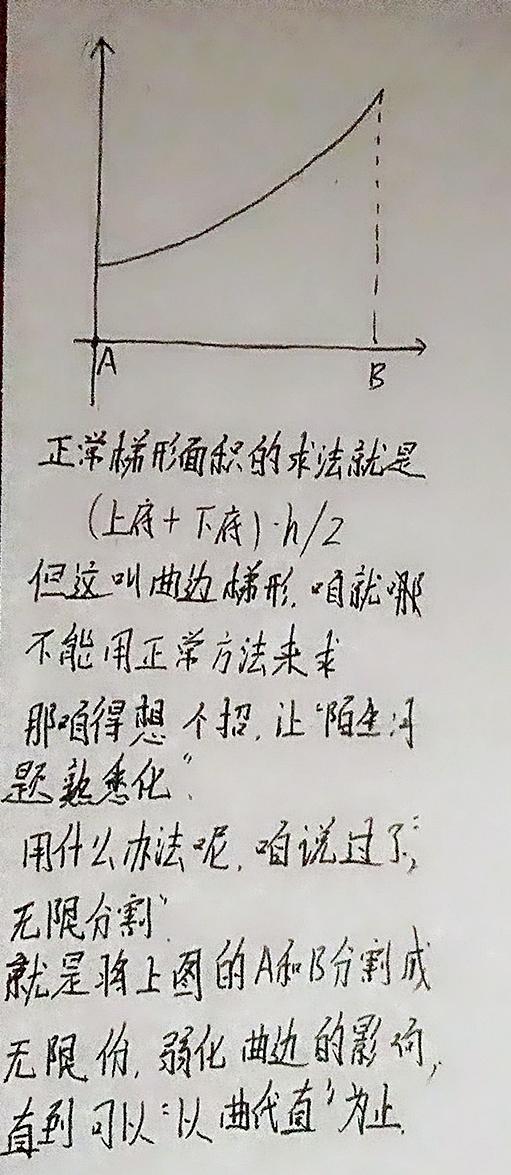 A
B
正常梯形面积的求法就是
(上底+下底)·h/2
但这叫曲边梯形,咱就
不能用正常方法来求
那咱得想个招,让“陌生问
题熟悉化”.
用什么办法呢,咱说过了,“
无限分割”.
就是将上图的A和B分割成
无限份,弱化曲边的影响,
直到可以“以曲代直”为止.